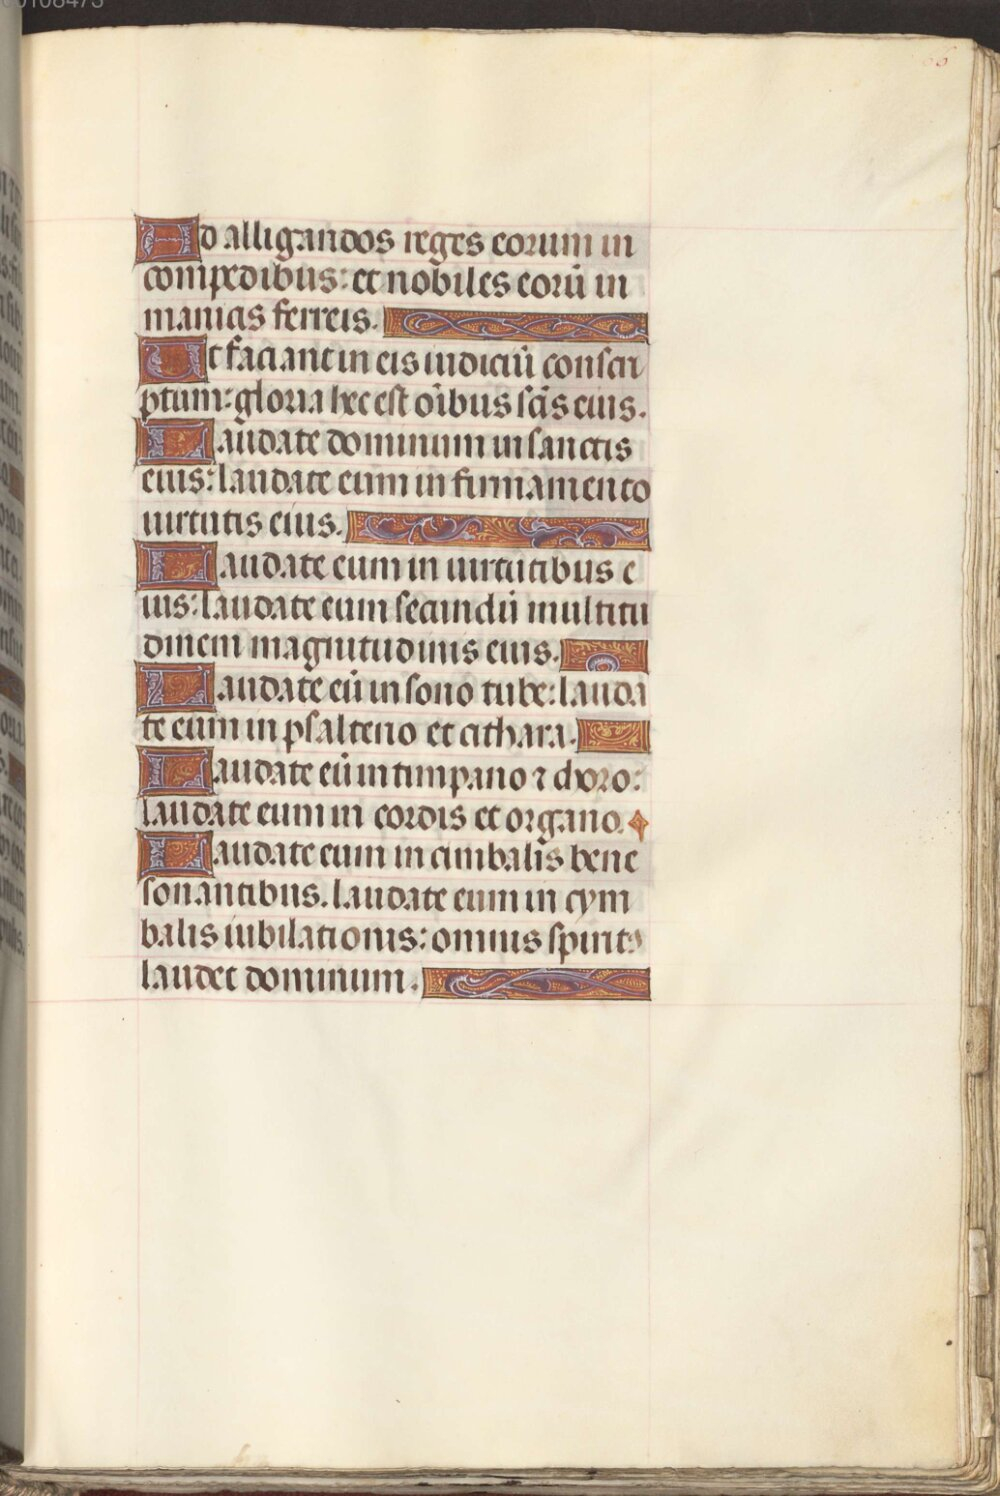 Ad alligandos reges eorum in
compedibus: et nobiles eorū in
manicis ferreis.
Ut faciant in eis iudiciū conscri
ptum: gloria hec est oībus sc̄is eius.
Laudate dominum in sanctis
eius: laudate eum in firmamento
uirtutis eius.
Laudate eum in uirtutibus e
ius: laudate eum secundū multitu
dinem magnitudinis eius.
Laudate eū in sono tube: lauda
te eum in psalterio et cithara.
Laudate eū in timpano ⁊ choro:
laudate eum in cordis et organo.
Laudate eum in cimbalis bene
sonantibus. laudate eum in cym
balis iubilationis: omnis spiritꝰ
laudet dominum.